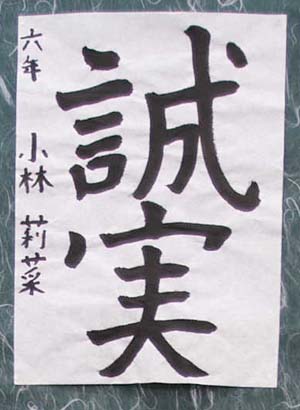 誠実
六年 小林 莉菜